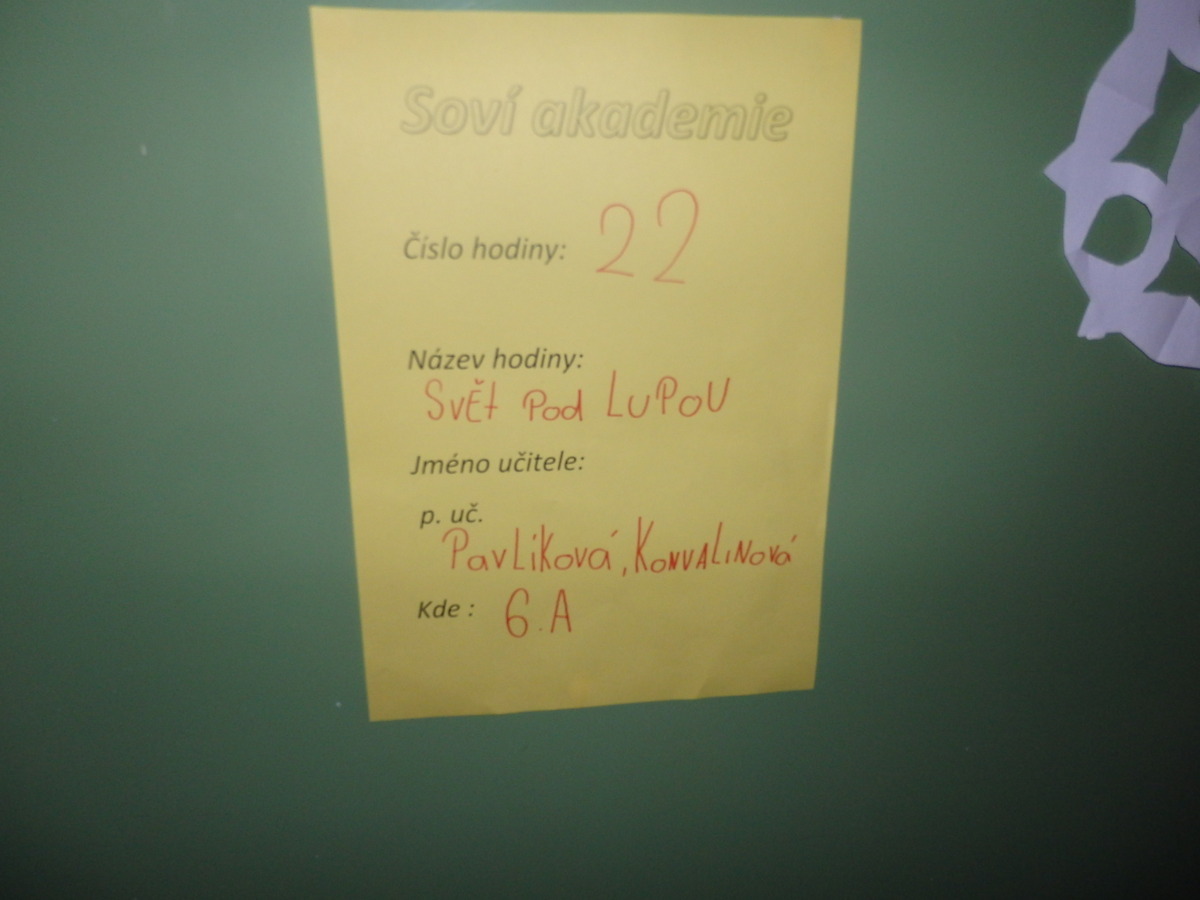 Soví akademie
Číslo hodiny: 22
Název hodiny:
SvĚt Pod LuPoU
Jméno učitele:
p. uč.
PavLíKová, KonvALiNová
Kde : 6.A